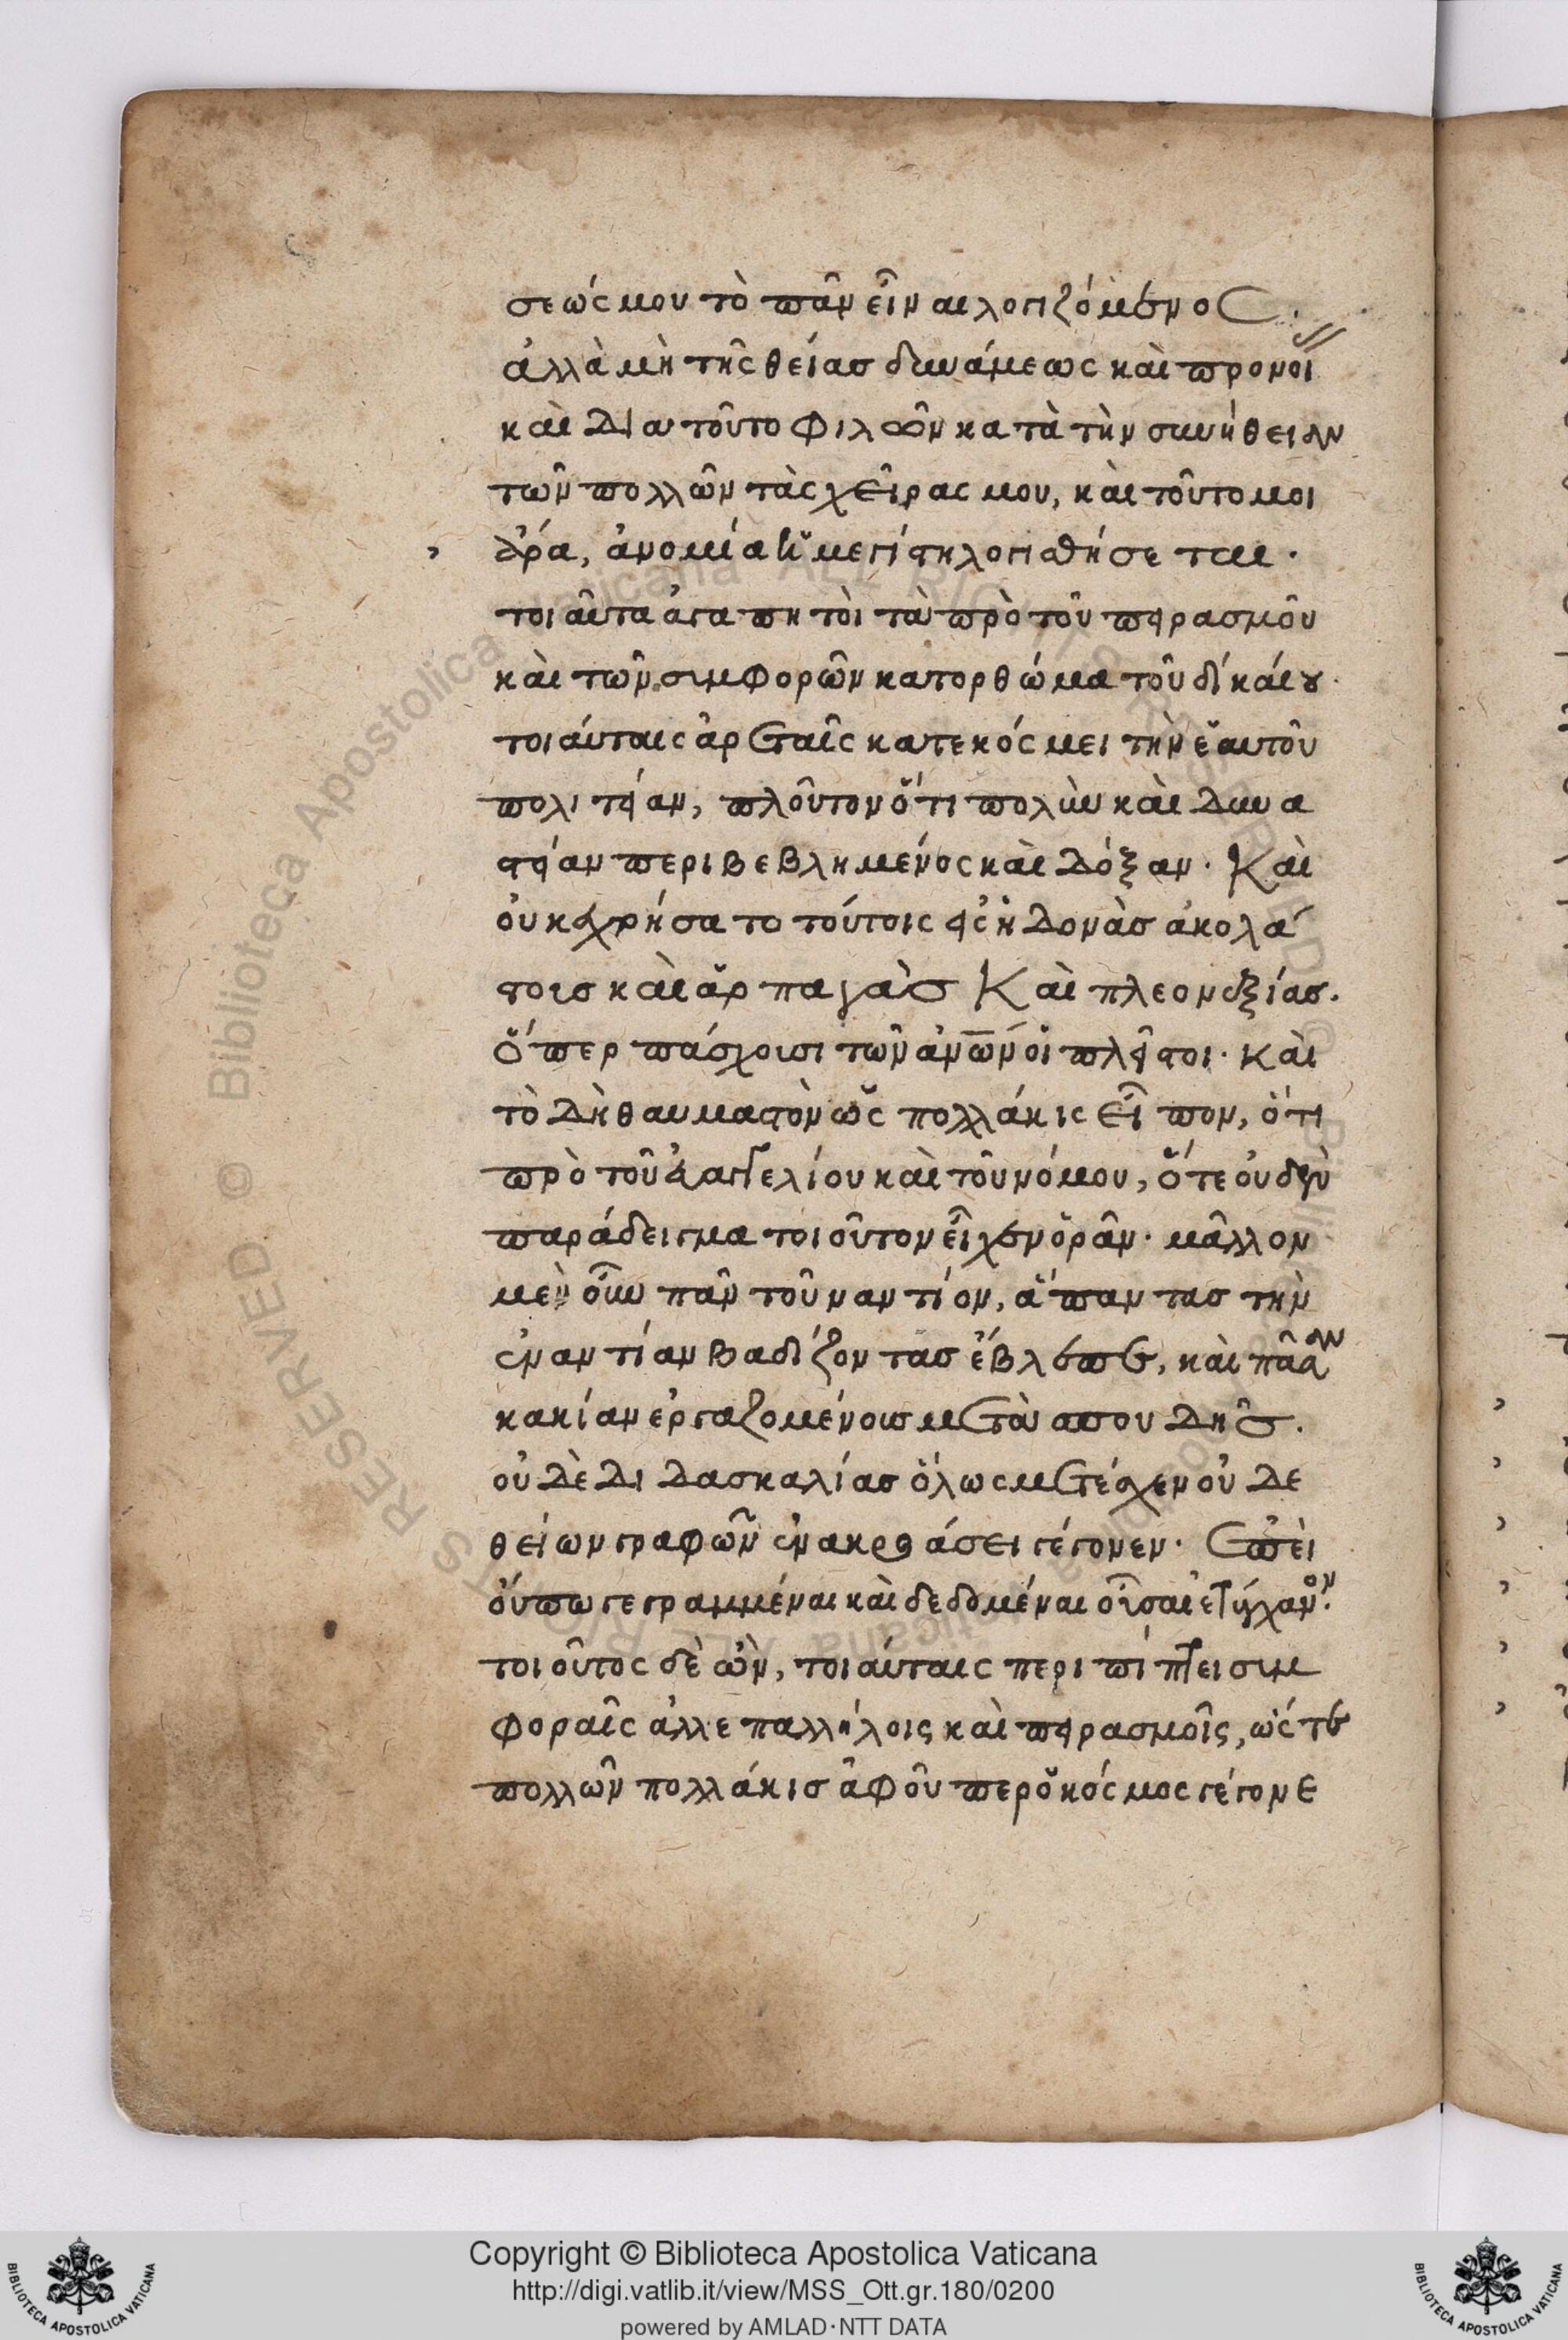 σεώς μου τὸ πᾶν εἶναι λογιζόμενος.
ἀλλὰ μὴ τῆς θείας δυνάμεως καὶ προνοί
καὶ διὰ τοῦτο φιλῶν κατὰ τὴν συνήθειαν
τῶν πολλῶν τὰς χεῖρας μου, καὶ τοῦτο μοι
ἄρα, ἀνομία ἡ μεγίστη λογισθήσεται.
τοιαῦτα ἀγαπητοὶ τὰ πρὸ τοῦ πειρασμοῦ
καὶ τῶν συμφορῶν κατορθώμα τοῦ δικαίου.
τοιαύταις ἀρεταῖς κατεκόσμει τὴν ἑαυτοῦ
πολιτείαν, πλοῦτον ὅτι πολὺν καὶ δυνα
στείαν περιβεβλημένος καὶ δόξαν. Καὶ
οὐκ ἐχρήσατο τούτοις εἰς ἡδονὰς ἀκολά
στοις καὶ ἁρπαγὰς Καὶ πλεονεξίας.
ὅπερ πάσχουσι τῶν ἀνῶν οἱ πλεῖστοι. καὶ
τὸ δὴ θαυμαστὸν ὡς πολλάκις εἶπον, ὅτι
πρὸ τοῦ εὐαγγελίου καὶ τοῦ νόμου, ὅτε οὐδὲν
παράδειγμα τοιοῦτον εἶχεν ὁρᾶν. μᾶλλον
μὲν οὖν πᾶν τοὐναντίον, ἅπαντας τὴν
ἐναντίαν βαδίζοντας ἔβλεπε, καὶ πᾶσαν
κακίαν ἐργαζομένους μετὰ σπουδῆς.
οὐδὲ διδασκαλίας ὅλως μετέσχεν οὐδε
θείων γραφῶν ἐν ἀκροάσει γέγονεν. ἐπεὶ
οὔπω γεγραμμέναι καὶ δεδομέναι οὖσαι ἐτύγχανον.
τοιοῦτος δὲ ὢν, τοιαύταις περιπίπτει συμ
φοραῖς ἀλλεπαλλήλοις καὶ πειρασμοῖς, ὡς τε
πολλῶν πολλάκις ἀφοῦ περ ὁ κόσμος γέγονε
Copyright © Biblioteca Apostolica Vaticana
http://digi.vatlib.it/view/MSS_Ott.gr.180/0200
powered by AMLAD·NTT DATA